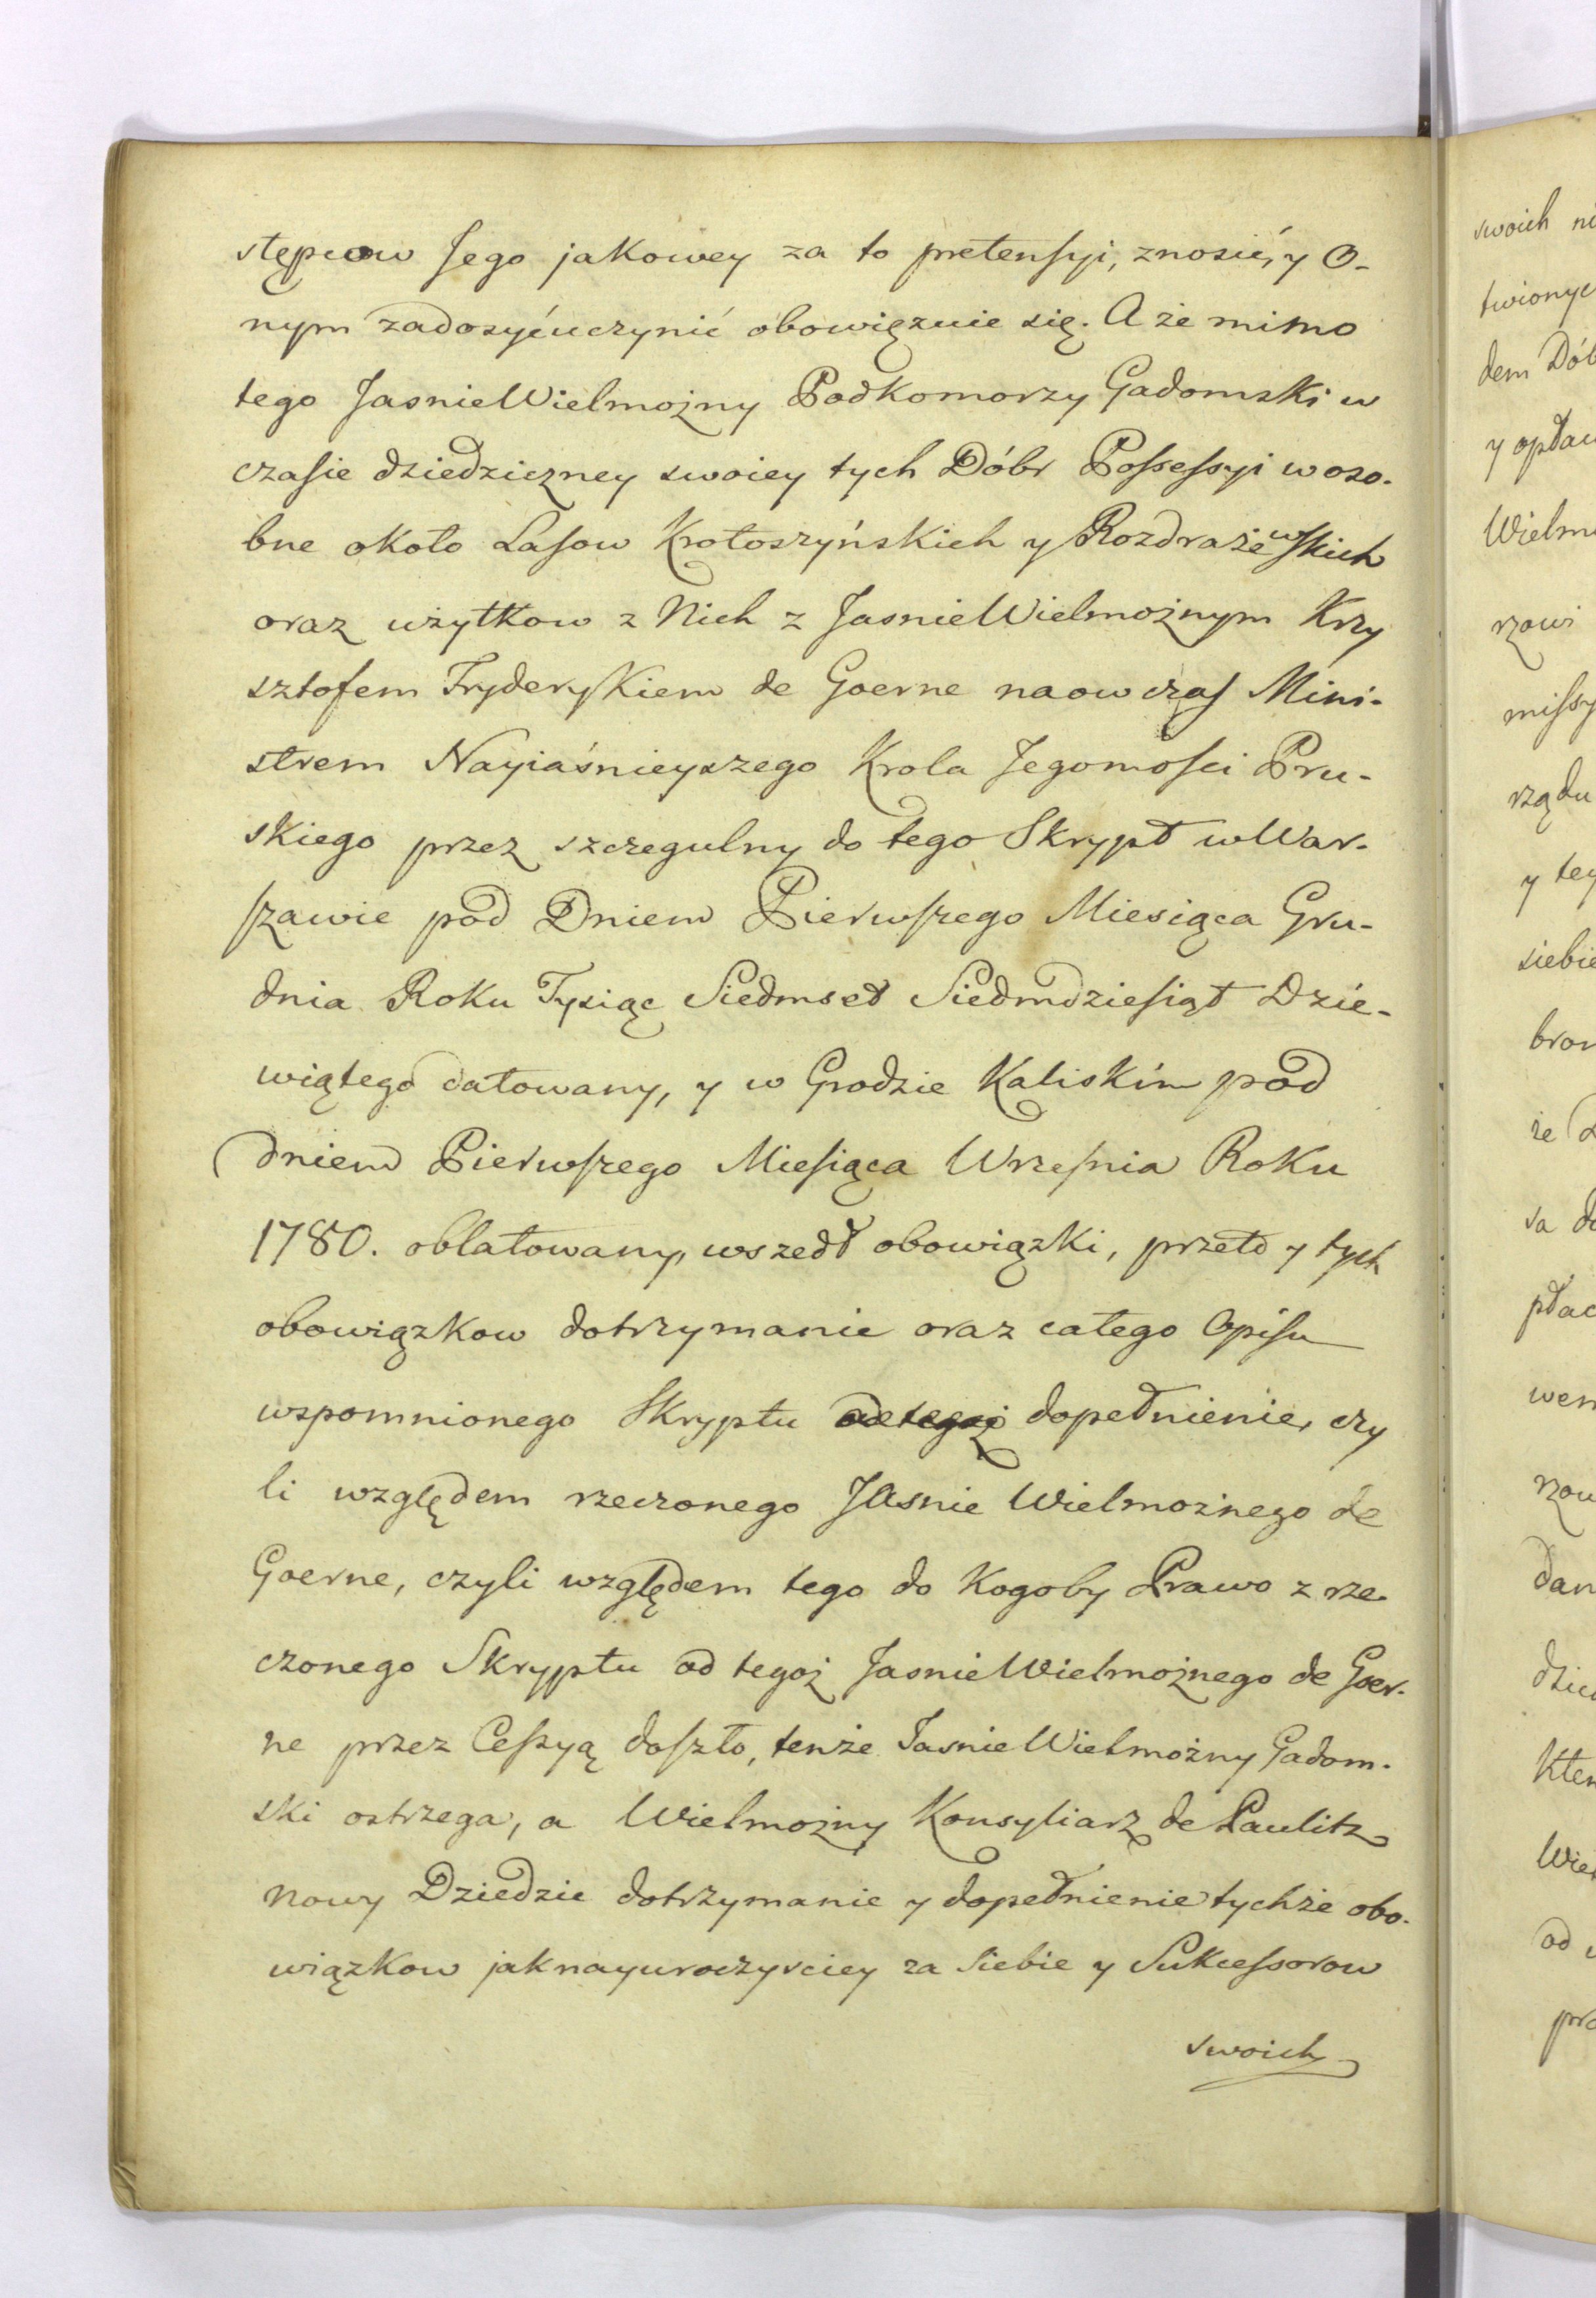 stępcow Jego jakowey za to pretensyi, znosić, y O-
nym zadosyćuczynić obowięzuie się. A że mimo
tego JasnieWielmożny Podkomorzy Gadomski w
czasie dziedziczney swoiey tych Dóbr Possessyi w oso-
bne około Lasow Krotoszyńskich y Rozdrażewskich
oraz użytkow z Nich z JasnieWielmożnym Krzy
sztofem Fryderykiem de Goerne naow czas Mini-
strem Nayiaśnieyszego Krola Jegomosci Pru-
skiego przez szczegulny do tego Skrypt w War-
szawie pod Dniem Pierwszego Miesiąca Gru-
dnia Roku Tysiąc Siedmset Siedmdziesiąt Dzie-
wiątego datowany, y w Grodzie Kaliskim pod
dniem Pierwszego Miesiąca Wrzesnia Roku
1780. oblatowany, wszedł obowiązki, przeto y tych
obowiązkow dotrzymanie oraz całego Opisu
wspomnionego Skryptu od tegoż dopełnienie, czy
li względem rzeczonego JAsnie Wielmożnego de
Goerne, czyli względem tego do Kogoby Prawo z rze-
czonego Skryptu od tegoż JasnieWielmożnego de Goer-
ne przez Cessyą doszło, tenże JasnieWielmożny Gadom-
ski ostrzega, a Wielmożny Konsyliarz de Paulitz
nowy Dziedzic dotrzymanie y dopełnienie tychże obo-
wiązkow jaknayuroczyściey za siebie y Sukcessorow
swoich
swoich
dem
y
Wielm
rzowi
rządu
y tey
siebie
że
sa
od